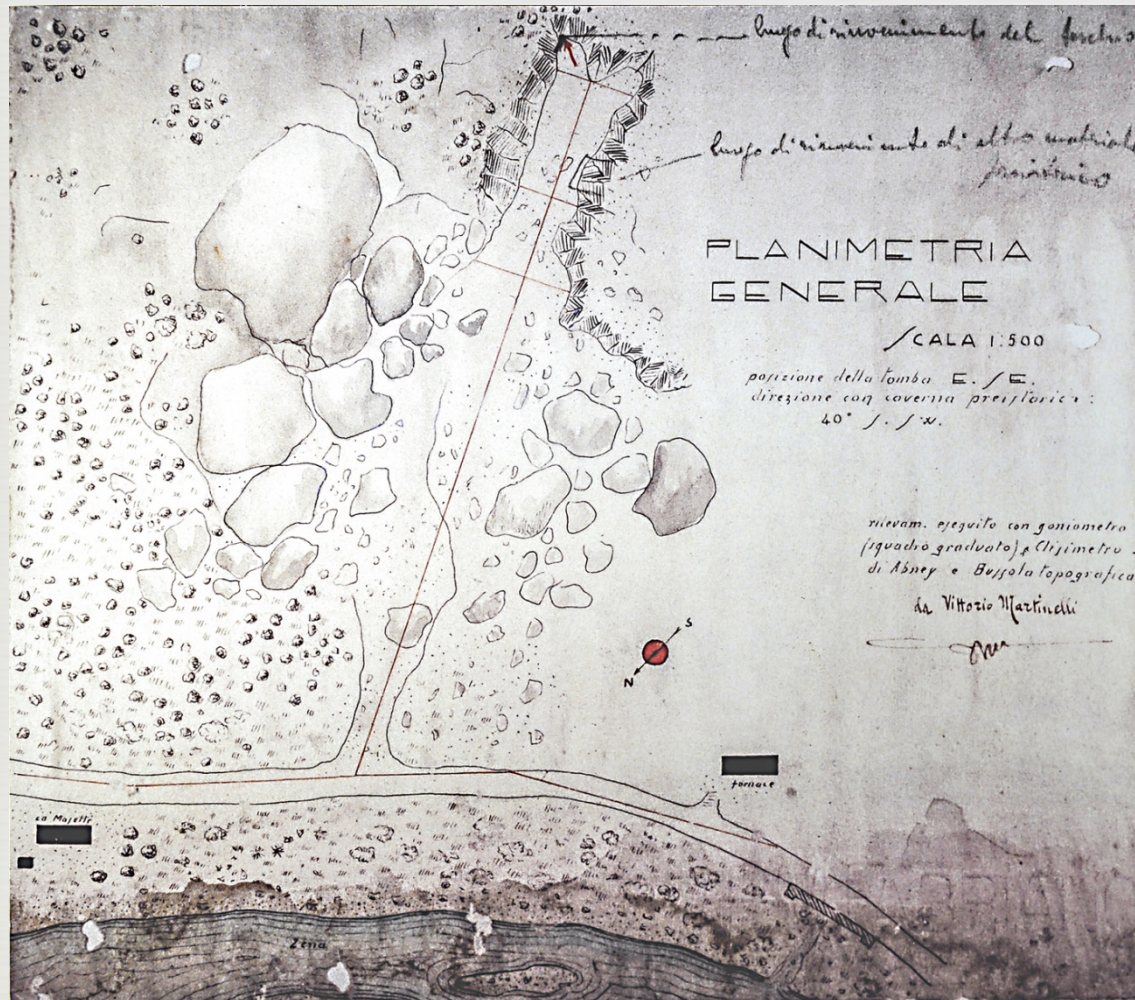 luogo di rinvenimento del teschio
luogo di rinvenimento di altro materiale
preistorico
PLANIMETRIA
GENERALE
SCALA 1:500
posizione della tomba E. SE.
direzione con caverna preistorica :
40° S. S.W.
rilevam. eseguito con goniometro
(squadro graduato) e Clisimetro
di Abney e Bussola topografica
da Vittorio Martinelli
S
N
fornace
ca Masetti
Zena